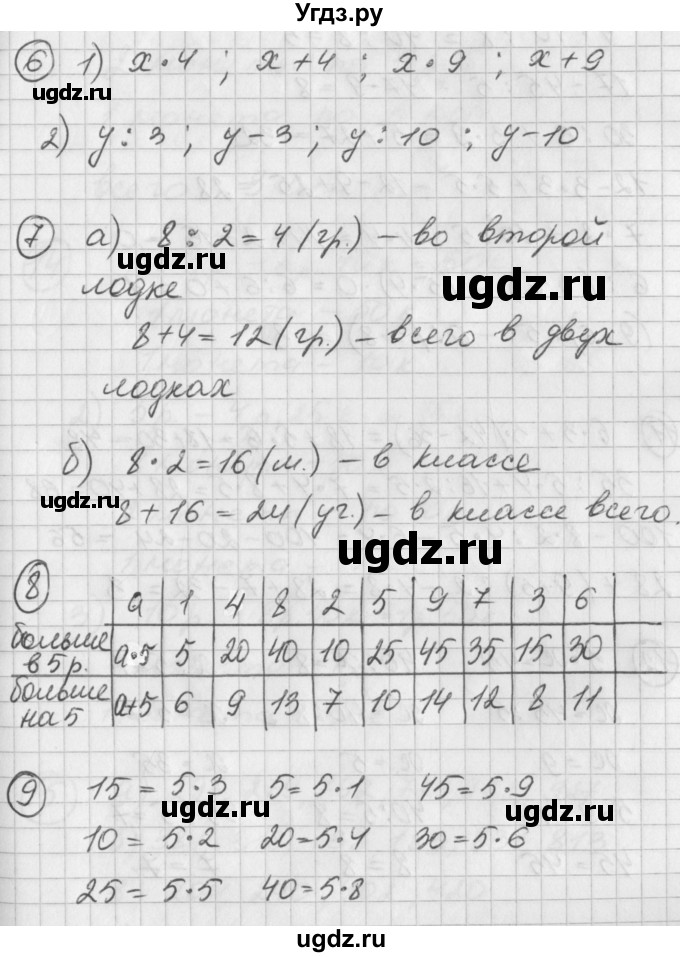 Угдз.ру
6 1) x·4 ; x+4 ; x·9 ; x+9
ugdz.ru
2) y:3 ; y-3 ; y:10 ; y-10
7 а) 8:2=4 (гр.) – во второй
ugdz.ru
ugdz.ru
лодке
8+4=12 (гр.) – всего в двух
лодках
б) 8·2=16 (м.) – в классе
ugdz.ru
8+16=24 (уг.) – в классе всего.
ugdz.ru
8
a 1 4 8 2 5 9 7 3 6
больше в 5 р. a·5 5 20 40 10 25 45 35 15 30
больше на 5 a+5 6 9 13 7 10 14 12 8 11
9 15=5·3 5=5·1 45=5·9
ugdz.ru
ugdz.ru
10=5·2 20=5·4 30=5·6
25=5·5 40=5·8
ugdz.ru